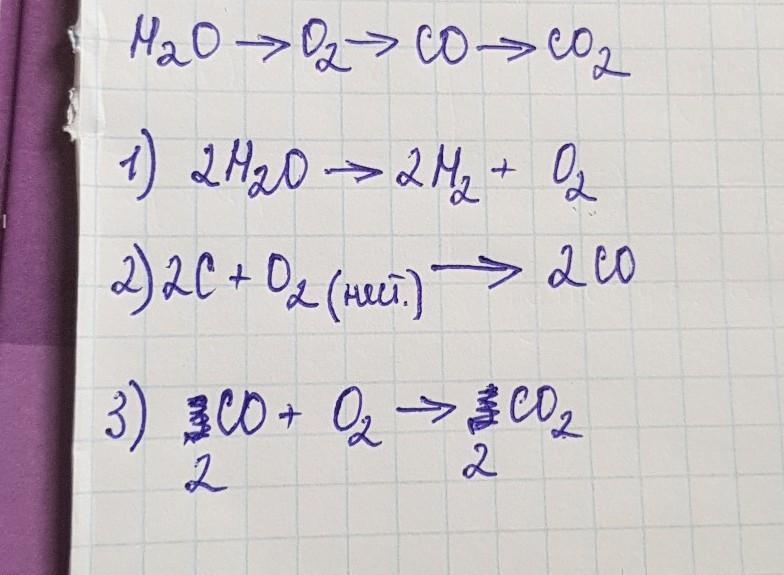 H₂O → O₂ → CO → CO₂
1) 2H₂O → 2H₂ + O₂
2) 2C + O₂ (нест.) → 2CO
3) CO + O₂ → CO₂
2 2